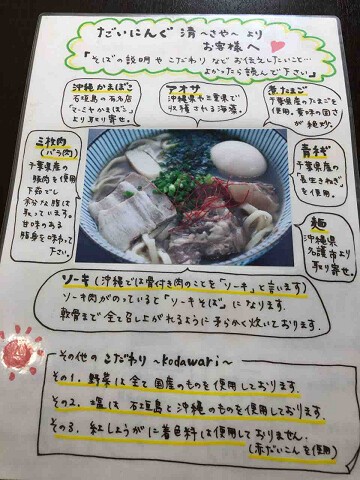 だいにんぐ 清 ～さや～ より
お客様へ
『そばの説明や こだわり など お伝えしたいこと…
よかったら読んで下さい』
沖縄かまぼこ
石垣島の有名店
「マーミヤかまぼこ」
より取り寄せ。
アオサ
沖縄県や三重県で
収穫される海藻。
煮たまご
千葉県産のたまごを
使用。黄味の固さ
が絶妙。
三枚肉
(バラ肉)
千葉県産の
豚肉を使用
下茹でし
余分な脂は
取っています。
甘味のある
脂身を味わって
下さい。
青ネギ
千葉県産の
「長生きねぎ」
を使用。
麺
沖縄県
名護市より
取り寄せ。
ソーキ (沖縄では骨付き肉のことを「ソーキ」と言います)
ソーキ肉がのっていると「ソーキそば」になります。
軟骨まで全て召し上がれるように柔らかく炊いております。
その他の こだわり ～Kodawari～
その1. 野菜は全て国産のものを使用しております。
その2. 塩は 石垣島と沖縄のものを使用しております。
その3. 紅しょうがに着色料は使用しておりません。
(赤だいこんを使用)